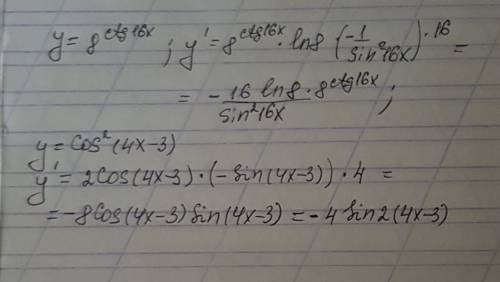 y = 8^{ctg16x}; y' = 8^{ctg16x} · ln8 (-1/sin²16x) · 16 =
= - 16 ln8 · 8^{ctg16x}/sin²16x;
y = cos²(4x-3)
y' = 2cos(4x-3)·(-sin(4x-3))·4 =
= -8cos(4x-3)sin(4x-3) = -4 sin2(4x-3)